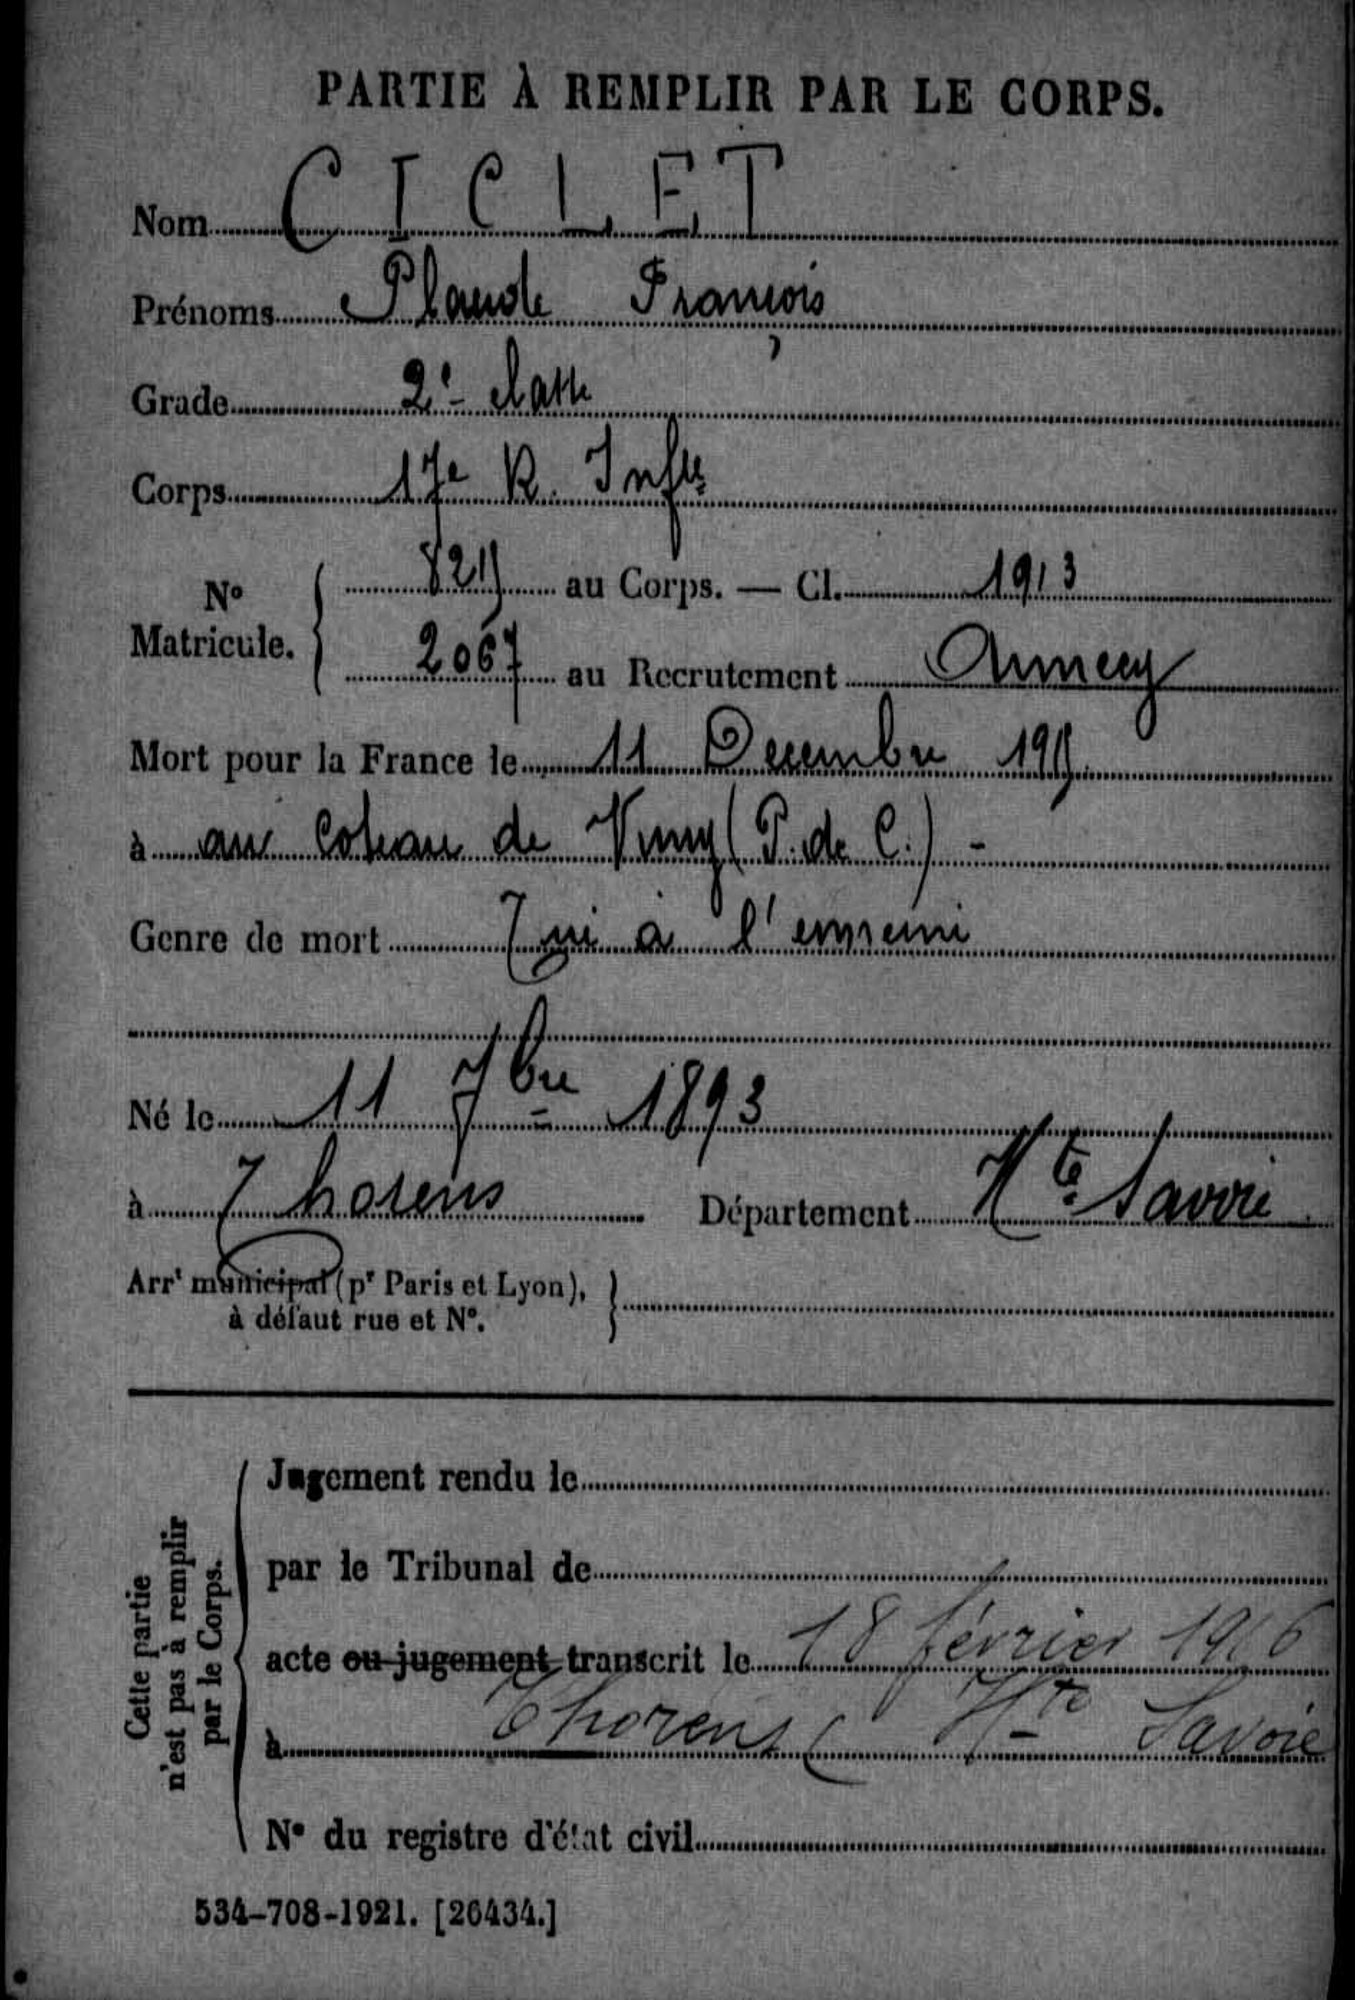 PARTIE À REMPLIR PAR LE CORPS.
Nom CICLET
Prénoms Claude François
Grade 2e classe
Corps 17e R. Infie
No Matricule. 8215 au Corps. — Cl. 1913
2067 au Recrutement Annecy
Mort pour la France le 11 Decembre 1915
à au coteau de Vimy (P. de C.) -
Genre de mort Tué à l'ennemi
Né le 11 7bre 1893
à Thorens Département Hte Savoie
Arrt municipal (pr Paris et Lyon),
à défaut rue et No.
Cette partie
n'est pas à remplir
par le Corps.
Jugement rendu le
par le Tribunal de
acte ou jugement transcrit le 18 février 1916
à Thorens (Hte Savoie
No du registre d'état civil
534-708-1921. [26434.]